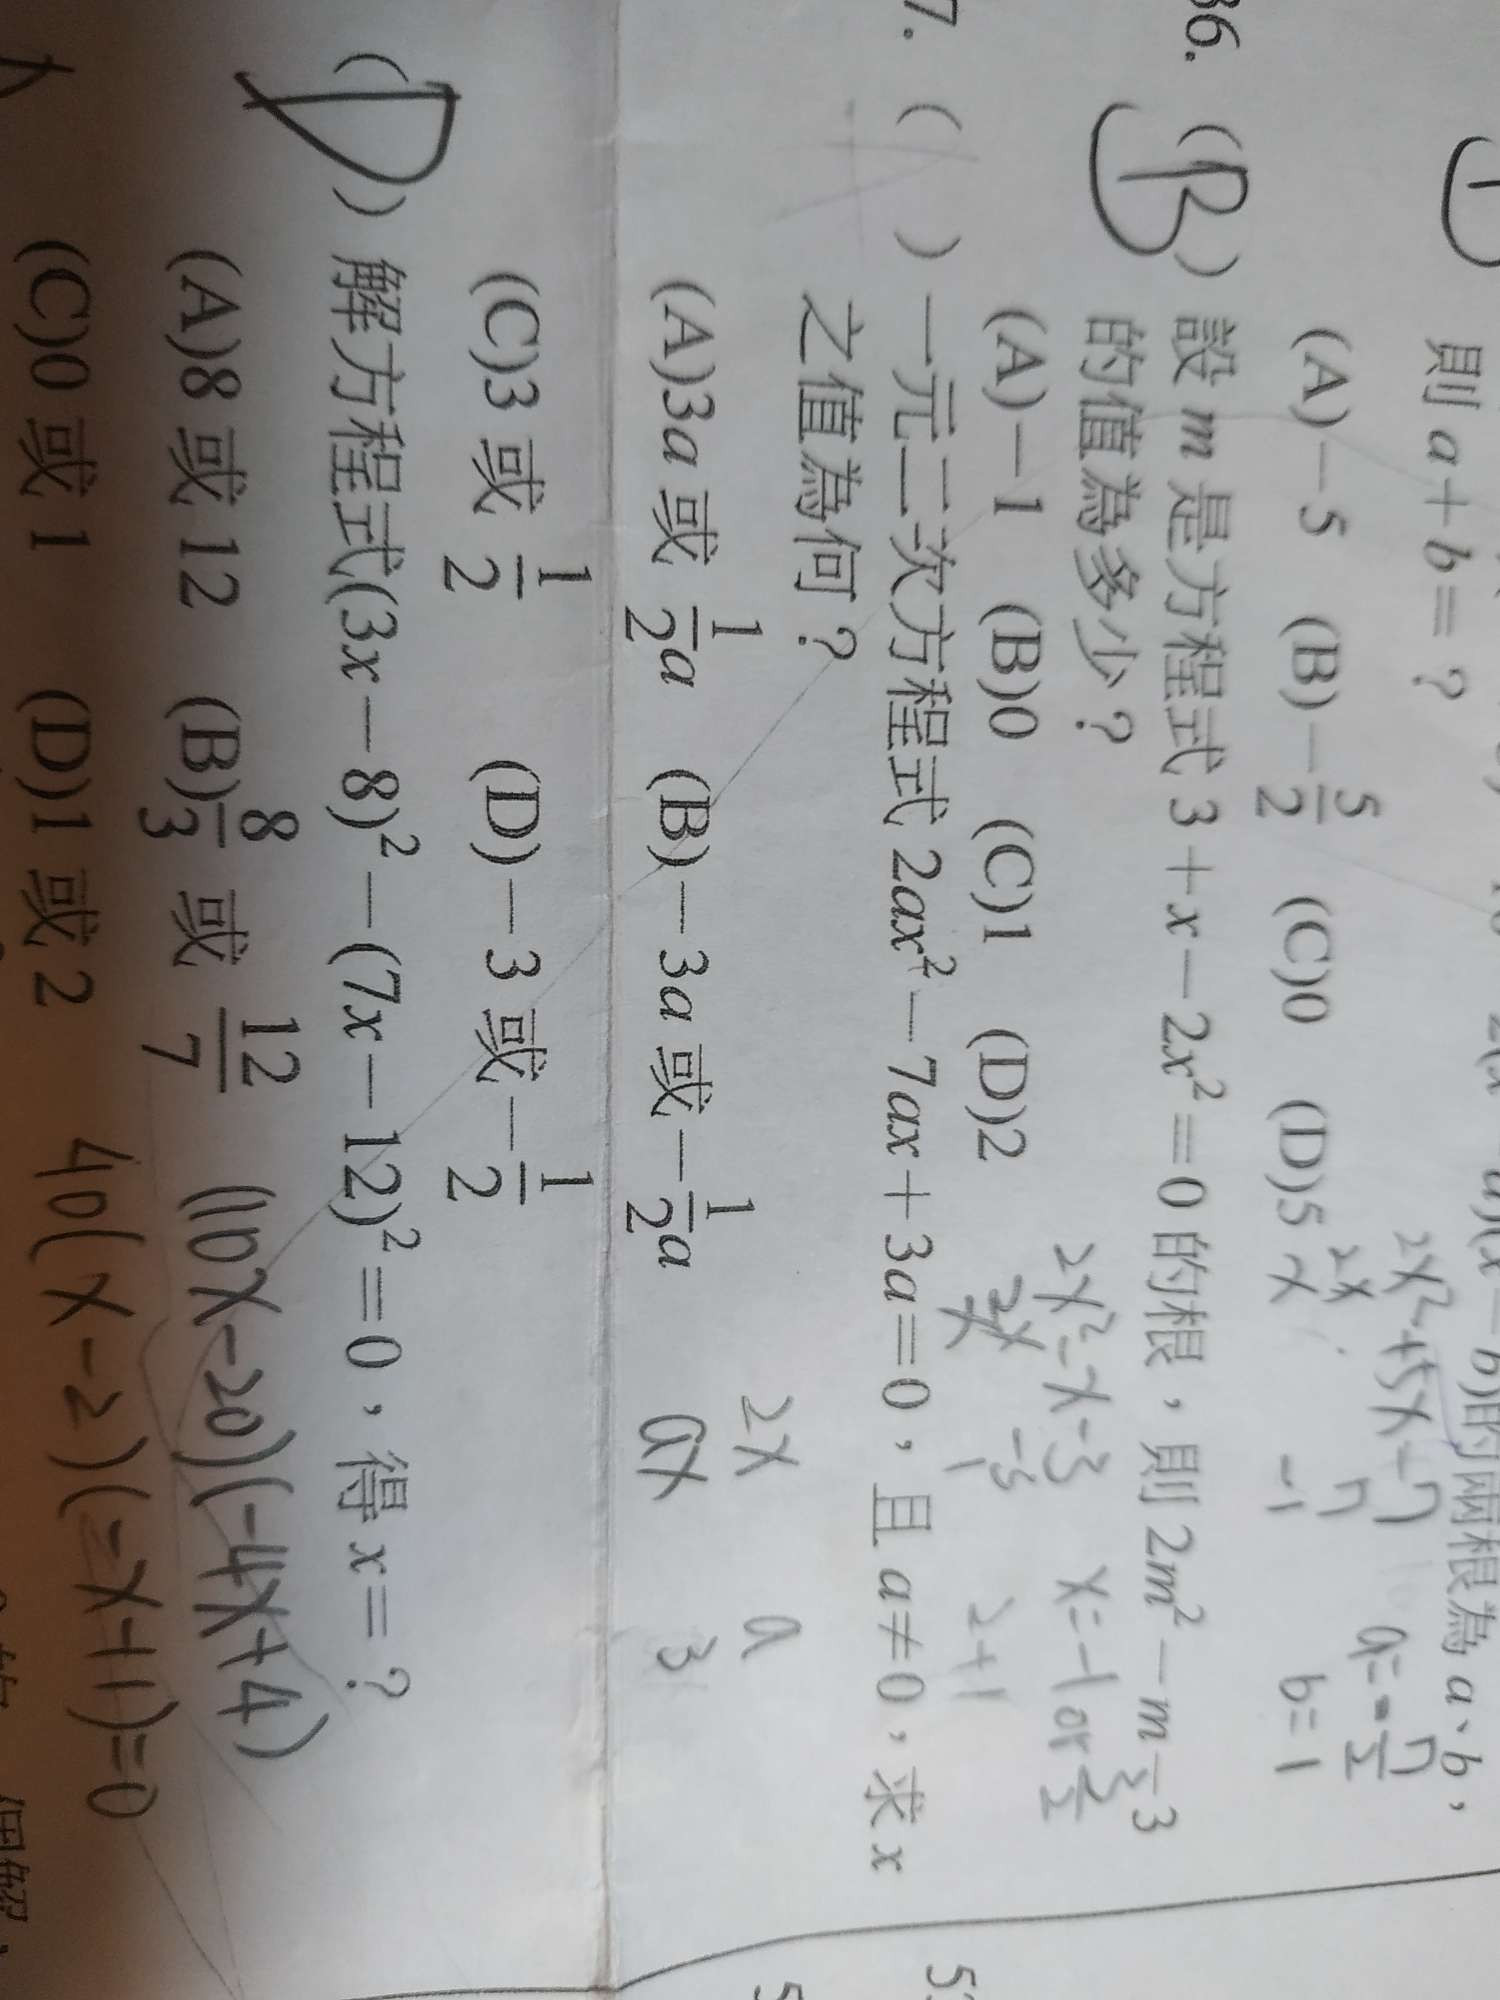 則 a+b=?
(A)-5 (B)-5/2 (C)0 (D)5
2x²+5x-7
2x 7
x -1
a=-7/2
b=1
36. (B) 設 m 是方程式 3+x-2x²=0 的根，則 2m²-m-3
的值為多少？
(A)-1 (B)0 (C)1 (D)2
2x²-x-3
2x -3
x 1
x=-1 or 3/2
2+1
7. ( ) 一元二次方程式 2ax²-7ax+3a=0，且 a≠0，求 x
之值為何？
(A)3a 或 1/2a (B)-3a 或 -1/2a
(C)3 或 1/2 (D)-3 或 -1/2
2x a
ax 3
(D) 解方程式(3x-8)²-(7x-12)²=0，得 x=?
(A)8 或 12 (B)8/3 或 12/7
(C)0 或 1 (D)1 或 2
(10x-20)(-4x+4)
40(x-2)(-x+1)=0